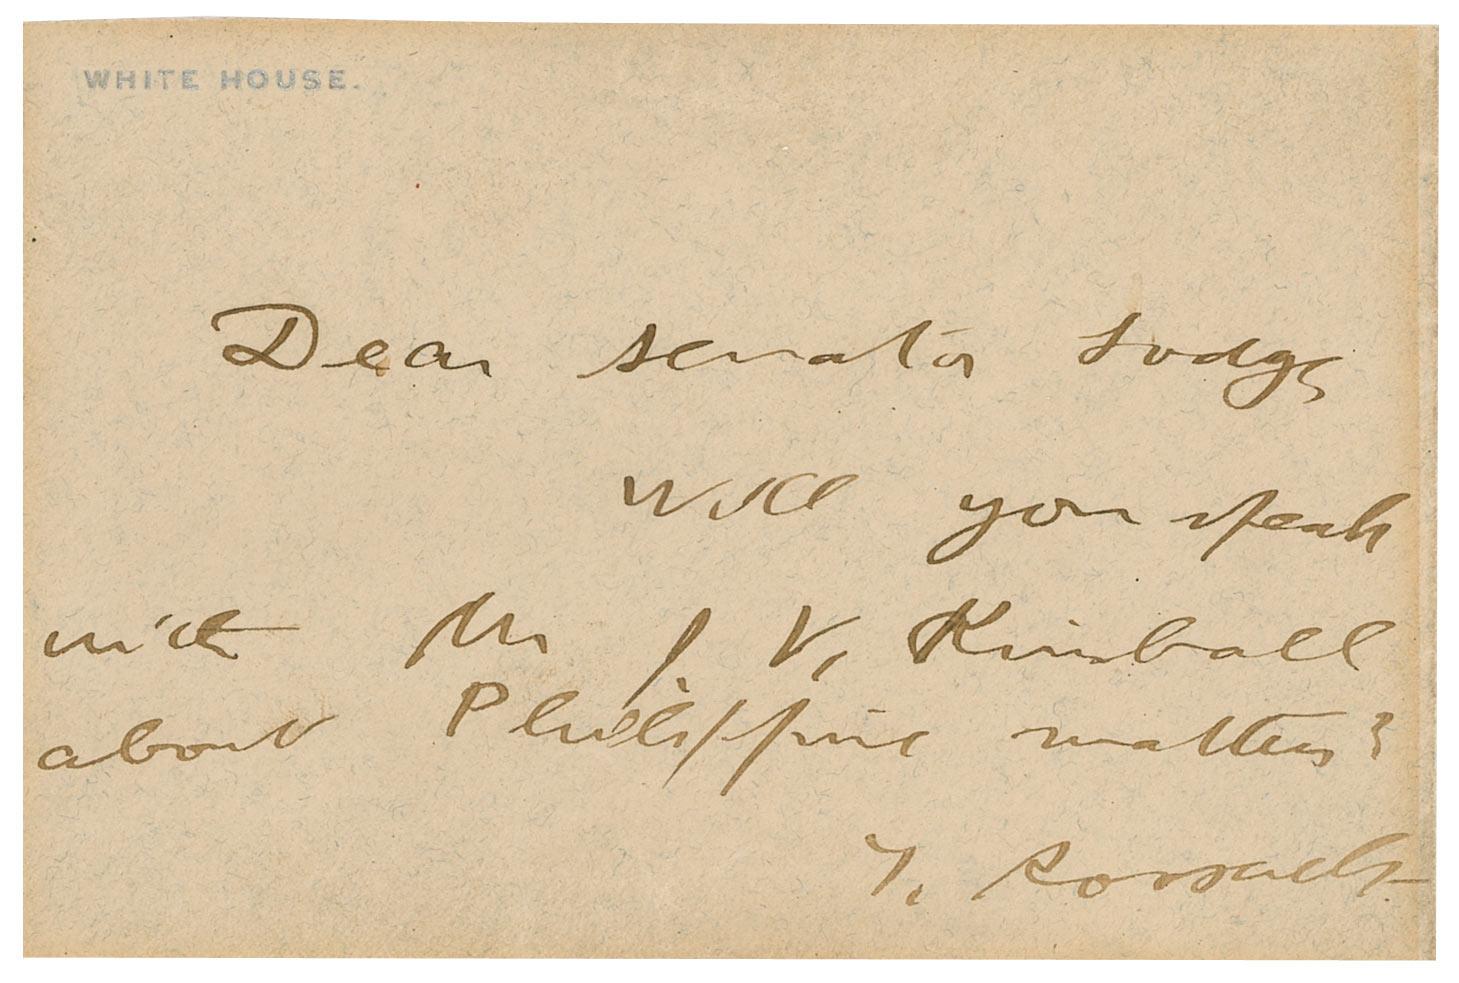 WHITE HOUSE.
Dear Senator Lodge
Will you speak
with Mr J. V. Kimball
about Philippine matters?
T. Roosevelt